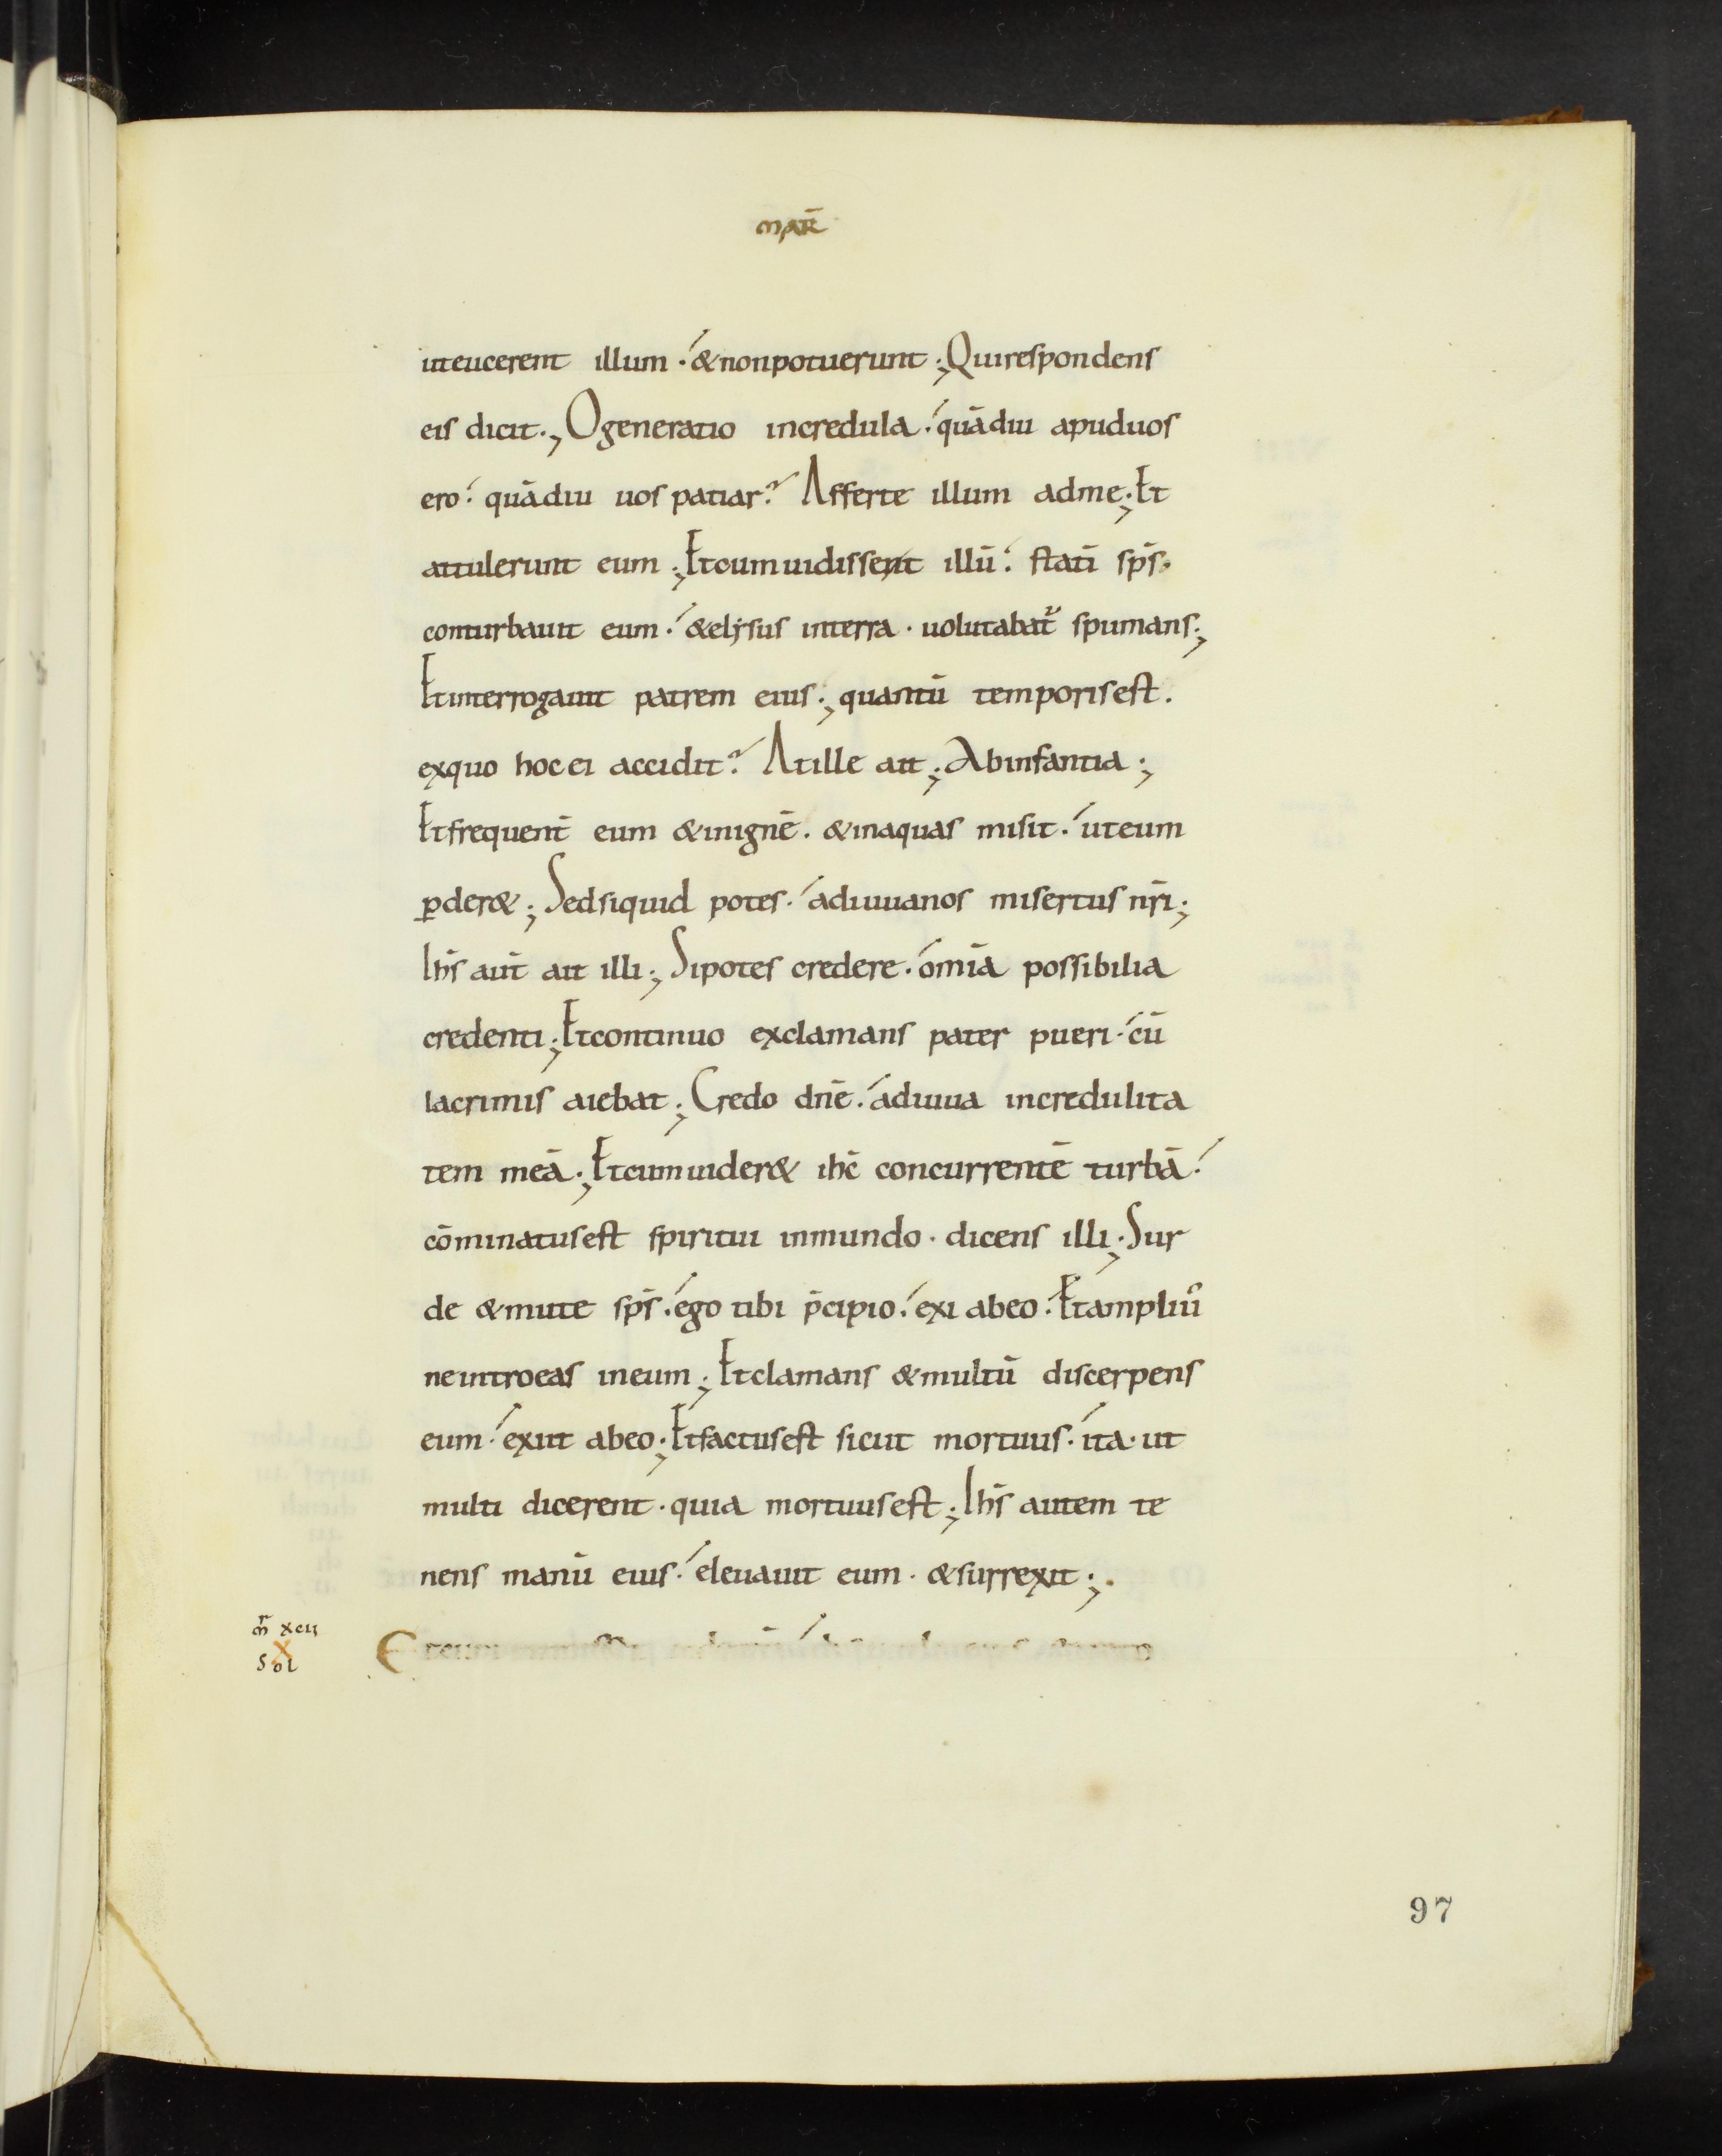 MAR̄
uteicerent illum · &nonpotuerunt ; Quirespondens
eis dicit ·, Ogeneratio incredula · quādiu apuduos
ero · quādiu uos patiar ? Afferte illum adme ; Et
attulerunt eum ; Etcumuidissent illū · statī sp̄s ·
conturbauit eum · &elisus interra · uolutabat̄ spumans ;
Etinterrogauit patrem eius ; quantū temporisest ·
exquo hocei accidit ? Atille ait ; Abinfantia ;
Etfrequent̄ eum &inignē · &inaquas misit · uteum
ꝑder& ; Sedsiquid potes · adiuuanos misertus nr̄i ;
Ih̄s aut̄ ait illi ; Sipotes credere · om̄ia possibilia
credenti ; Etcontinuo exclamans pater pueri · cū
lacrimis aiebat ; Credo dn̄e · adiuua incredulita
tem meā ; Etcumuider& ih̄c concurrentē turbā ·
cōminatusest spiritui inmundo · dicens illi ; Sur
de &mute sp̄s · ego tibi p̄cipio · exi abeo · Etampliuꝰ
neintroeas ineum ; Etclamans &multū discerpens
eum · exiit abeo ; Etfactusest sicut mortuus · ita · ut
multi dicerent · quia mortuusest ; Ih̄s autem te
nens manū eius · eleuauit eum · &surrexit ;·
m̄r xcii
X
Sol
97